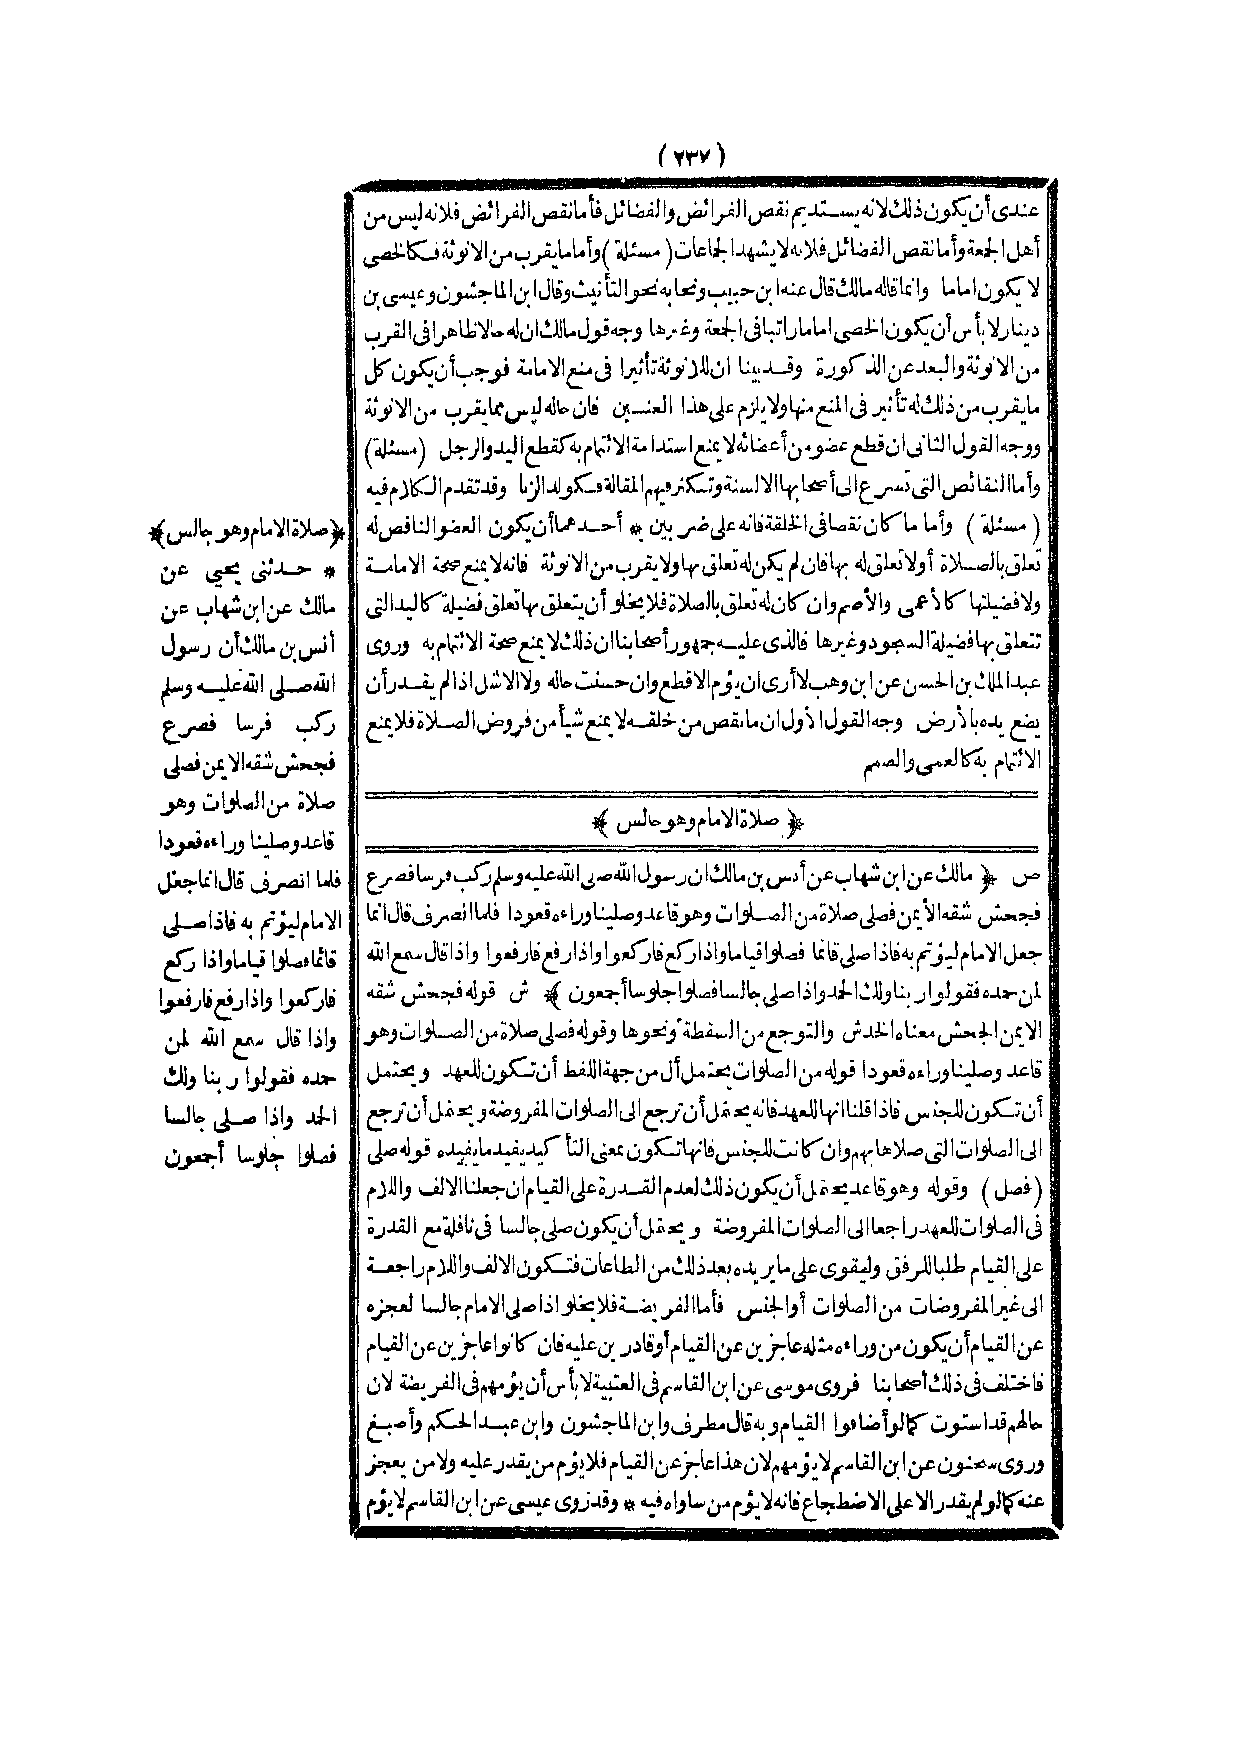 (٢٣٧)
عندى أن يكون ذلك لانه يستديم نقص الفرائض والفضائل فأما نقص الفرائض فلانه ليس من
أهل الجمعة وأما نقص الفضائل فلانه لا يشهد الجماعات (مسئلة) وأما ما يقرب من الانوثة فكالخصى
لا يكون اماما وانما قاله مالك قال عنه ابن حبيب ونحا به نحو التأنيث وقال ابن الماجشون وعيسى بن
دينار لا بأس أن يكون الخصى اماما راتبا فى الجمعة وغيرها وجه قول مالك ان له حالا ظاهرا فى القرب
من الانوثة والبعد عن الذكورة وقد بينا ان للانوثة تأثيرا فى منع الامامة فوجب أن يكون كل
ما يقرب من ذلك له تأثير فى المنع منها ولا يلزم على هذا العنين فان حاله ليس مما يقرب من الانوثة
ووجه القول الثانى ان قطع عضو من أعضائه لا يمنع استدامة الائتمام به كقطع اليد والرجل (مسئلة)
وأما النقائص التى تسرع الى أصحابها الالسنة وتكثر فيهم المقالة فكولد الزنا وقد تقدم الكلام فيه
(مسئلة) وأما ما كان نقصا فى الخلقة فانه على ضربين * أحدهما أن يكون العضو الناقص له
تعلق بالصلاة أو لا تعلق له بها فان لم يكن له تعلق بها ولا يقرب من الانوثة فانه لا يمنع صحة الامامة
ولا فضيلتها كالأعمى والأصم وان كان له تعلق بالصلاة فلا يخلو أن يتعلق بها تعلق فضيلة كاليد التى
تتعلق بها فضيلة السجود وغيرها فالذى عليه جمهور أصحابنا ان ذلك لا يمنع صحة الائتمام به وروى
عبد الملك بن الحسن عن ابن وهب لا أرى ان يؤم الاقطع وان حسنت حاله ولا الاشل اذا لم يقدر أن
يضع يده بالأرض وجه القول الأول ان ما نقص من خلقه لا يمنع شيأ من فروض الصلاة فلا يمنع
الائتمام به كالعمى والصمم
﴿ صلاة الامام وهو جالس ﴾
ص ﴿ مالك عن ابن شهاب عن أنس بن مالك ان رسول الله صلى الله عليه وسلم ركب فرسا فصرع
فجحش شقه الأيمن فصلى صلاة من الصلوات وهو قاعد وصلينا وراءه قعودا فلما انصرف قال انما
جعل الامام ليؤتم به فاذا صلى قائما فصلوا قياما واذا ركع فاركعوا واذا رفع فارفعوا واذا قال سمع الله
لمن حمده فقولوا ربنا ولك الحمد واذا صلى جالسا فصلوا جلوسا أجمعون ﴾ ش قوله فجحش شقه
الايمن الجحش معناه الخدش والتوجع من السقطة ونحوها وقوله فصلى صلاة من الصلوات وهو
قاعد وصلينا وراءه قعودا قوله من الصلوات يحتمل أل من جهة اللفظ أن تكون للعهد ويحتمل
أن تكون للجنس فاذا قلنا انها للعهد فانه يحتمل أن ترجع الى الصلوات المفروضة ويحتمل أن ترجع
الى الصلوات التى صلاها بهم وان كانت للجنس فانها تكون بمعنى التأكيد يفيد ما يفيده قوله صلى
(فصل) وقوله وهو قاعد يحتمل أن يكون ذلك لعدم القدرة على القيام ان جعلنا الالف واللام
فى الصلوات للعهد راجعا الى الصلوات المفروضة ويحتمل أن يكون صلى جالسا فى نافلة مع القدرة
على القيام طلبا للرفق وليقوى على ما يريده بعد ذلك من الطاعات فتكون الالف واللام راجعة
الى غير المفروضات من الصلوات أو الجنس فأما الفريضة فلا يخلو اذا صلى الامام جالسا لعجزه
عن القيام أن يكون من وراءه مثله عاجزين عن القيام أو قادرين عليه فان كانوا عاجزين عن القيام
فاختلف فى ذلك أصحابنا فروى موسى عن ابن القاسم فى العتبية لا بأس أن يؤمهم فى الفريضة لان
حالهم قد استوت كما لو أضافوا القيام وبه قال مطرف وابن الماجشون وابن عبد الحكم وأصبغ
وروى سحنون عن ابن القاسم لا يؤمهم لان هذا عاجز عن القيام فلا يؤم من يقدر عليه ولا من يعجز
عنه كما لو لم يقدر الا على الاضطجاع فانه لا يؤم من ساواه فيه * وقد روى عيسى عن ابن القاسم لا يؤم
﴿ صلاة الامام وهو جالس ﴾
* حدثنى يحيى عن
مالك عن ابن شهاب عن
أنس بن مالك أن رسول
الله صلى الله عليه وسلم
ركب فرسا فصرع
فجحش شقه الايمن فصلى
صلاة من الصلوات وهو
قاعد وصلينا وراءه قعودا
فلما انصرف قال انما جعل
الامام ليؤتم به فاذا صلى
قائما فصلوا قياما واذا ركع
فاركعوا واذا رفع فارفعوا
واذا قال سمع الله لمن
حمده فقولوا ربنا ولك
الحمد واذا صلى جالسا
فصلوا جلوسا أجمعون